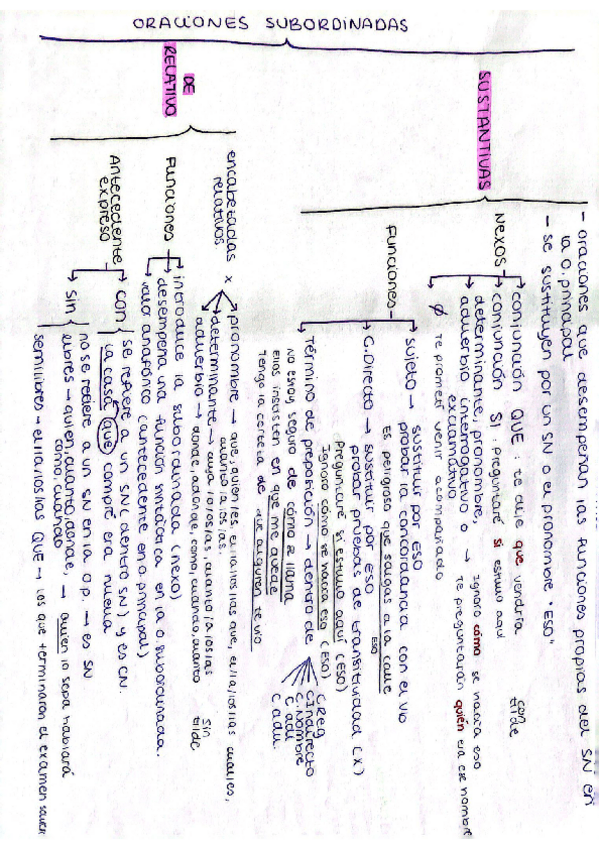 ORACIONES SUBORDINADAS
SUSTANTIVAS
- oraciones que desempeñan las funciones propias del SN en
la O. principal
- se sustituyen por un SN o el pronombre "ESO"
Nexos
conjunción QUE: te dije que vendría
conjunción SI: preguntaré si estuvo aquí
determinante, pronombre,
adverbio interrogativo o
exclamativo
con tilde
Ignoro cómo se nacía eso
Te preguntarán quién era ese nombre
Ø Te prometí venir acompañado
Funciones
Sujeto → sustituir por ESO
probar la concordancia con el vb
Es peligroso que salgas a la calle
ESO
C. Directo → sustituir por ESO
probar pruebas de transitividad (x)
Preguntaré si estuvo aquí (ESO)
Ignoro cómo se nacía eso (ESO)
Término de preposición → dentro de
C. Reg
C. Indirecto
C. Nombre
C. adj
C. adv.
No estoy seguro de cómo se llama
Ellos insisten en que me quede
Tengo la certeza de que alguien te vio
DE RELATIVO
encabezadas x relativos
pronombre → que, quien/es, el/la/los/las que, el/la/los/las cual/es,
cuanto/a/os/as.
determinante → cuyo/a/os/as, cuanto/a/os/as
adverbio → donde, adonde, como, cuando, cuanto
sin tilde
Funciones
introduce la subordinada (nexo)
desempeña una función sintáctica en la o. subordinada.
valor anafórico (antecedente en o. principal)
Antecedente expreso
con
se refiere a un SN (dentro SN) y es CN.
La casa que compré era nueva
sin
no se refiere a un SN en la o.p. → es SN
libres → quien, cuanto, donde, como, cuando → quien lo sepa hablará
semilibres → el/la/los/las QUE → Los que terminaron el examen